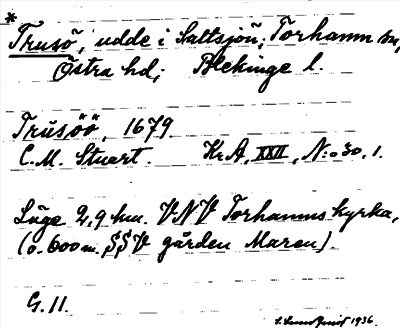 * Trusö, udde i Saltsjön; Torhamn sn,
Östra hd; Blekinge l.
Trusöö, 1679.
C.M. Stuart. Kr.A, XXII, N:o 30. 1.
Läge 2,9 km. VNV Torhamns kyrka,
(o. 600 m. SSV gården Maren).
G. 11.
1936.